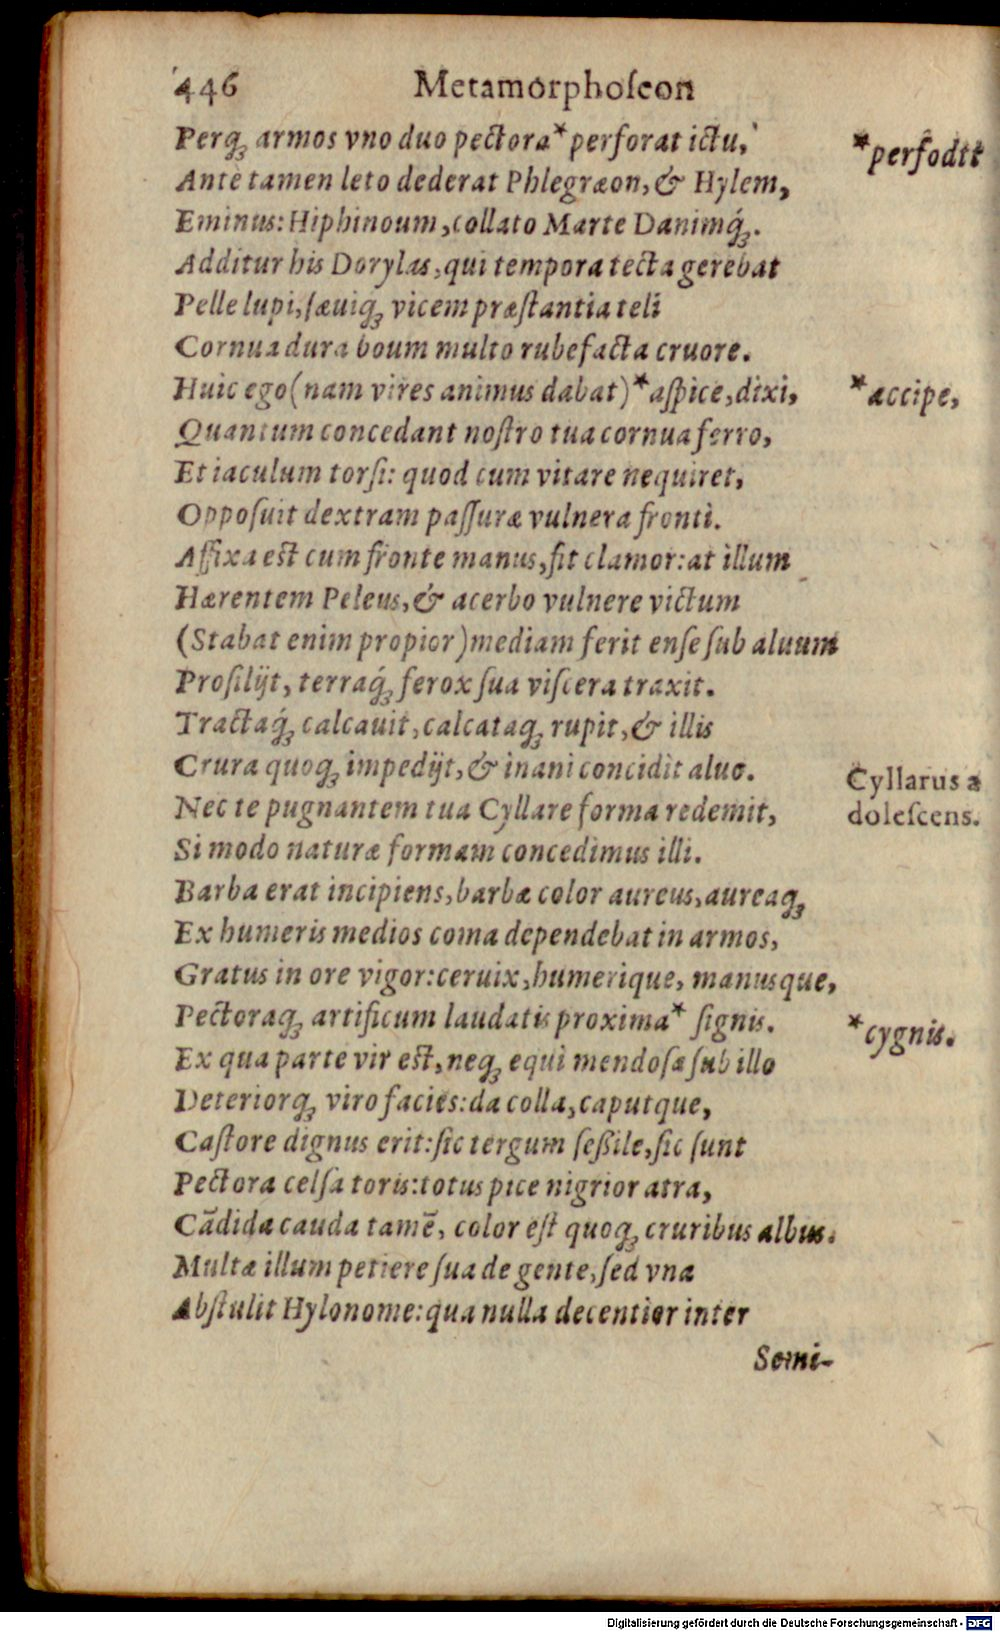 446 Metamorphoſeon
Perq́ꝫ armos vno duo pectora*perforat ictu, *perfodit
Ante tamen leto dederat Phlegræon, & Hylem,
Eminus: Hiphinoum, collato Marte Danimq́ꝫ.
Additur his Dorylas, qui tempora tecta gerebat
Pelle lupi, ſæuiqꝫ vicem præſtantia teli
Cornua dura boum multo rubefacta cruore.
Huic ego (nam vires animus dabat)*aſpice, dixi, *accipe,
Quantum concedant noſtro tua cornua ferro,
Et iaculum torſi: quod cum vitare nequiret,
Oppoſuit dextram paſſuræ vulnera fronti.
Affixa eſt cum fronte manus, fit clamor: at illum
Hærentem Peleus, & acerbo vulnere victum
(Stabat enim propior) mediam ferit enſe ſub aluum
Proſilijt, terraq́ꝫ ferox ſua viſcera traxit.
Tractaq́ꝫ calcauit, calcataqꝫ rupit, & illis
Crura quoqꝫ impedijt, & inani concidit aluo.
Nec te pugnantem tua Cyllare forma redemit, Cyllarus a
dolefcens.
Si modo naturæ formam concedimus illi.
Barba erat incipiens, barbæ color aureus, aureaqꝫ
Ex humeris medios coma dependebat in armos,
Gratus in ore vigor: ceruix, humerique, manusque,
Pectoraqꝫ artificum laudatis proxima* ſignis. *cygnis.
Ex qua parte vir eſt, neqꝫ equi mendoſæ ſub illo
Deteriorqꝫ viro facies: da colla, caputque,
Caſtore dignus erit: ſic tergum ſeßile, ſic ſunt
Pectora celſa toris: totus pice nigrior atra,
Cādida cauda tamē, color eſt quoqꝫ cruribus albus.
Multæ illum petiere ſua de gente, ſed vna
Abſtulit Hylonome: qua nulla decentior inter
Semi-
Digitalisierung gefördert durch die Deutsche Forschungsgemeinschaft - DFG